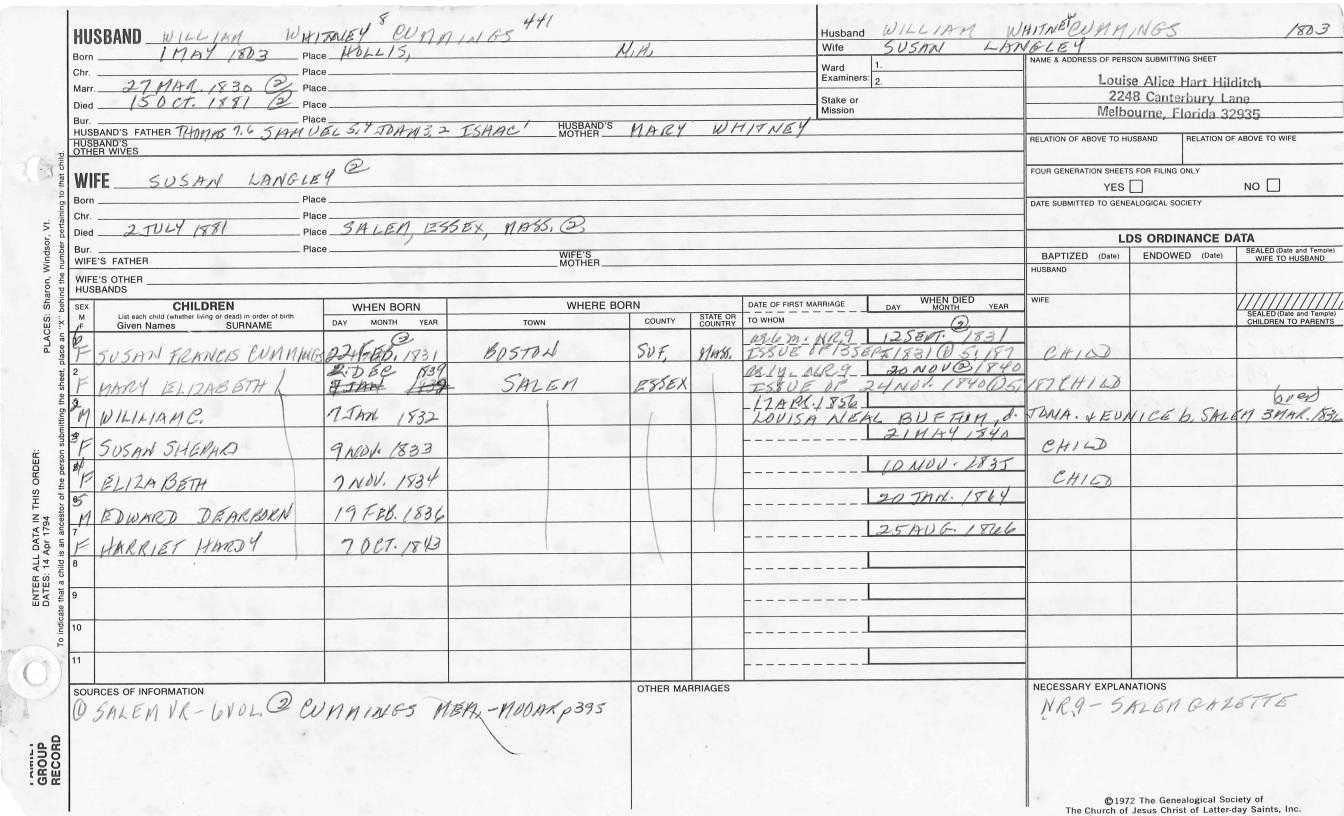 HUSBAND WILLIAM WHITNEY 8 CUMMINGS 441
Born 1 MAY 1803 Place HOLLIS, N.H.
Chr. Place
Marr. 27 MAR. 1830 ② Place
Died 15 OCT. 1881 ② Place
Bur. Place
HUSBAND'S FATHER THOMAS 7,6 SAMUEL 5,4 3,2 ISAAC 1 HUSBAND'S MOTHER MARY WHITNEY
HUSBAND'S OTHER WIVES
Husband WILLIAM WHITNEY CUMMINGS 1803
Wife SUSAN LANGLEY
Ward Examiners: 1.
2.
Stake or Mission
NAME & ADDRESS OF PERSON SUBMITTING SHEET
Louise Alice Hart Hilditch
2248 Canterbury Lane
Melbourne, Florida 32935
RELATION OF ABOVE TO HUSBAND RELATION OF ABOVE TO WIFE
FOUR GENERATION SHEETS FOR FILING ONLY
YES NO
DATE SUBMITTED TO GENEALOGICAL SOCIETY
WIFE SUSAN LANGLEY ②
Born Place
Chr. Place
Died 2 JULY 1881 Place SALEM, ESSEX, MASS. ②
Bur. Place
WIFE'S FATHER WIFE'S MOTHER
WIFE'S OTHER HUSBANDS
LDS ORDINANCE DATA
BAPTIZED (Date) ENDOWED (Date) SEALED (Date and Temple) WIFE TO HUSBAND
HUSBAND
WIFE
SEALED (Date and Temple) CHILDREN TO PARENTS
SEX M F CHILDREN WHEN BORN WHERE BORN DATE OF FIRST MARRIAGE WHEN DIED
List each child (whether living or dead) in order of birth
Given Names SURNAME DAY MONTH YEAR TOWN COUNTY STATE OR COUNTRY TO WHOM DAY MONTH YEAR
F SUSAN FRANCIS CUMMINGS 22 FEB. 1831 ② BOSTON SUF. MASS. NR9 12 SEPT. 1831 ②
ISSUE OF 13 SEPT 1831 ① 5:187 CHILD
2 F MARY ELIZABETH 2 DEC 1839 SALEM ESSEX NR9 20 NOV ② 1840
7 JAN 1832
ISSUE OF 24 NOV. 1840 ① 5:187 CHILD
3 M WILLIAM C. 7 JAN 1832 17 APR. 1856
LOUISA NEAL BUFFUM, d. JONA. & EUNICE b. SALEM 3 MAR. 1836
F SUSAN SHEPARD 9 NOV. 1833 21 MAY 1840 CHILD
F ELIZABETH 7 NOV. 1834 10 NOV. 1835 CHILD
M EDWARD DEARBORN 19 FEB. 1836 20 JAN. 1864
7 F HARRIET HARDY 7 OCT. 1843 25 AUG. 1866
8
9
10
11
SOURCES OF INFORMATION
① SALEM VR-6VOL. ② CUMMINGS MEM. p395
OTHER MARRIAGES
NECESSARY EXPLANATIONS
NR9 - SALEM GAZETTE
©1972 The Genealogical Society of
The Church of Jesus Christ of Latter-day Saints, Inc.
FAMILY GROUP RECORD
ENTER ALL DATA IN THIS ORDER:
DATES: 14 Apr 1794 PLACES: Sharon, Windsor, Vt.
To indicate that a child is an ancestor of the person submitting the sheet, place an "X" behind the number pertaining to that child.